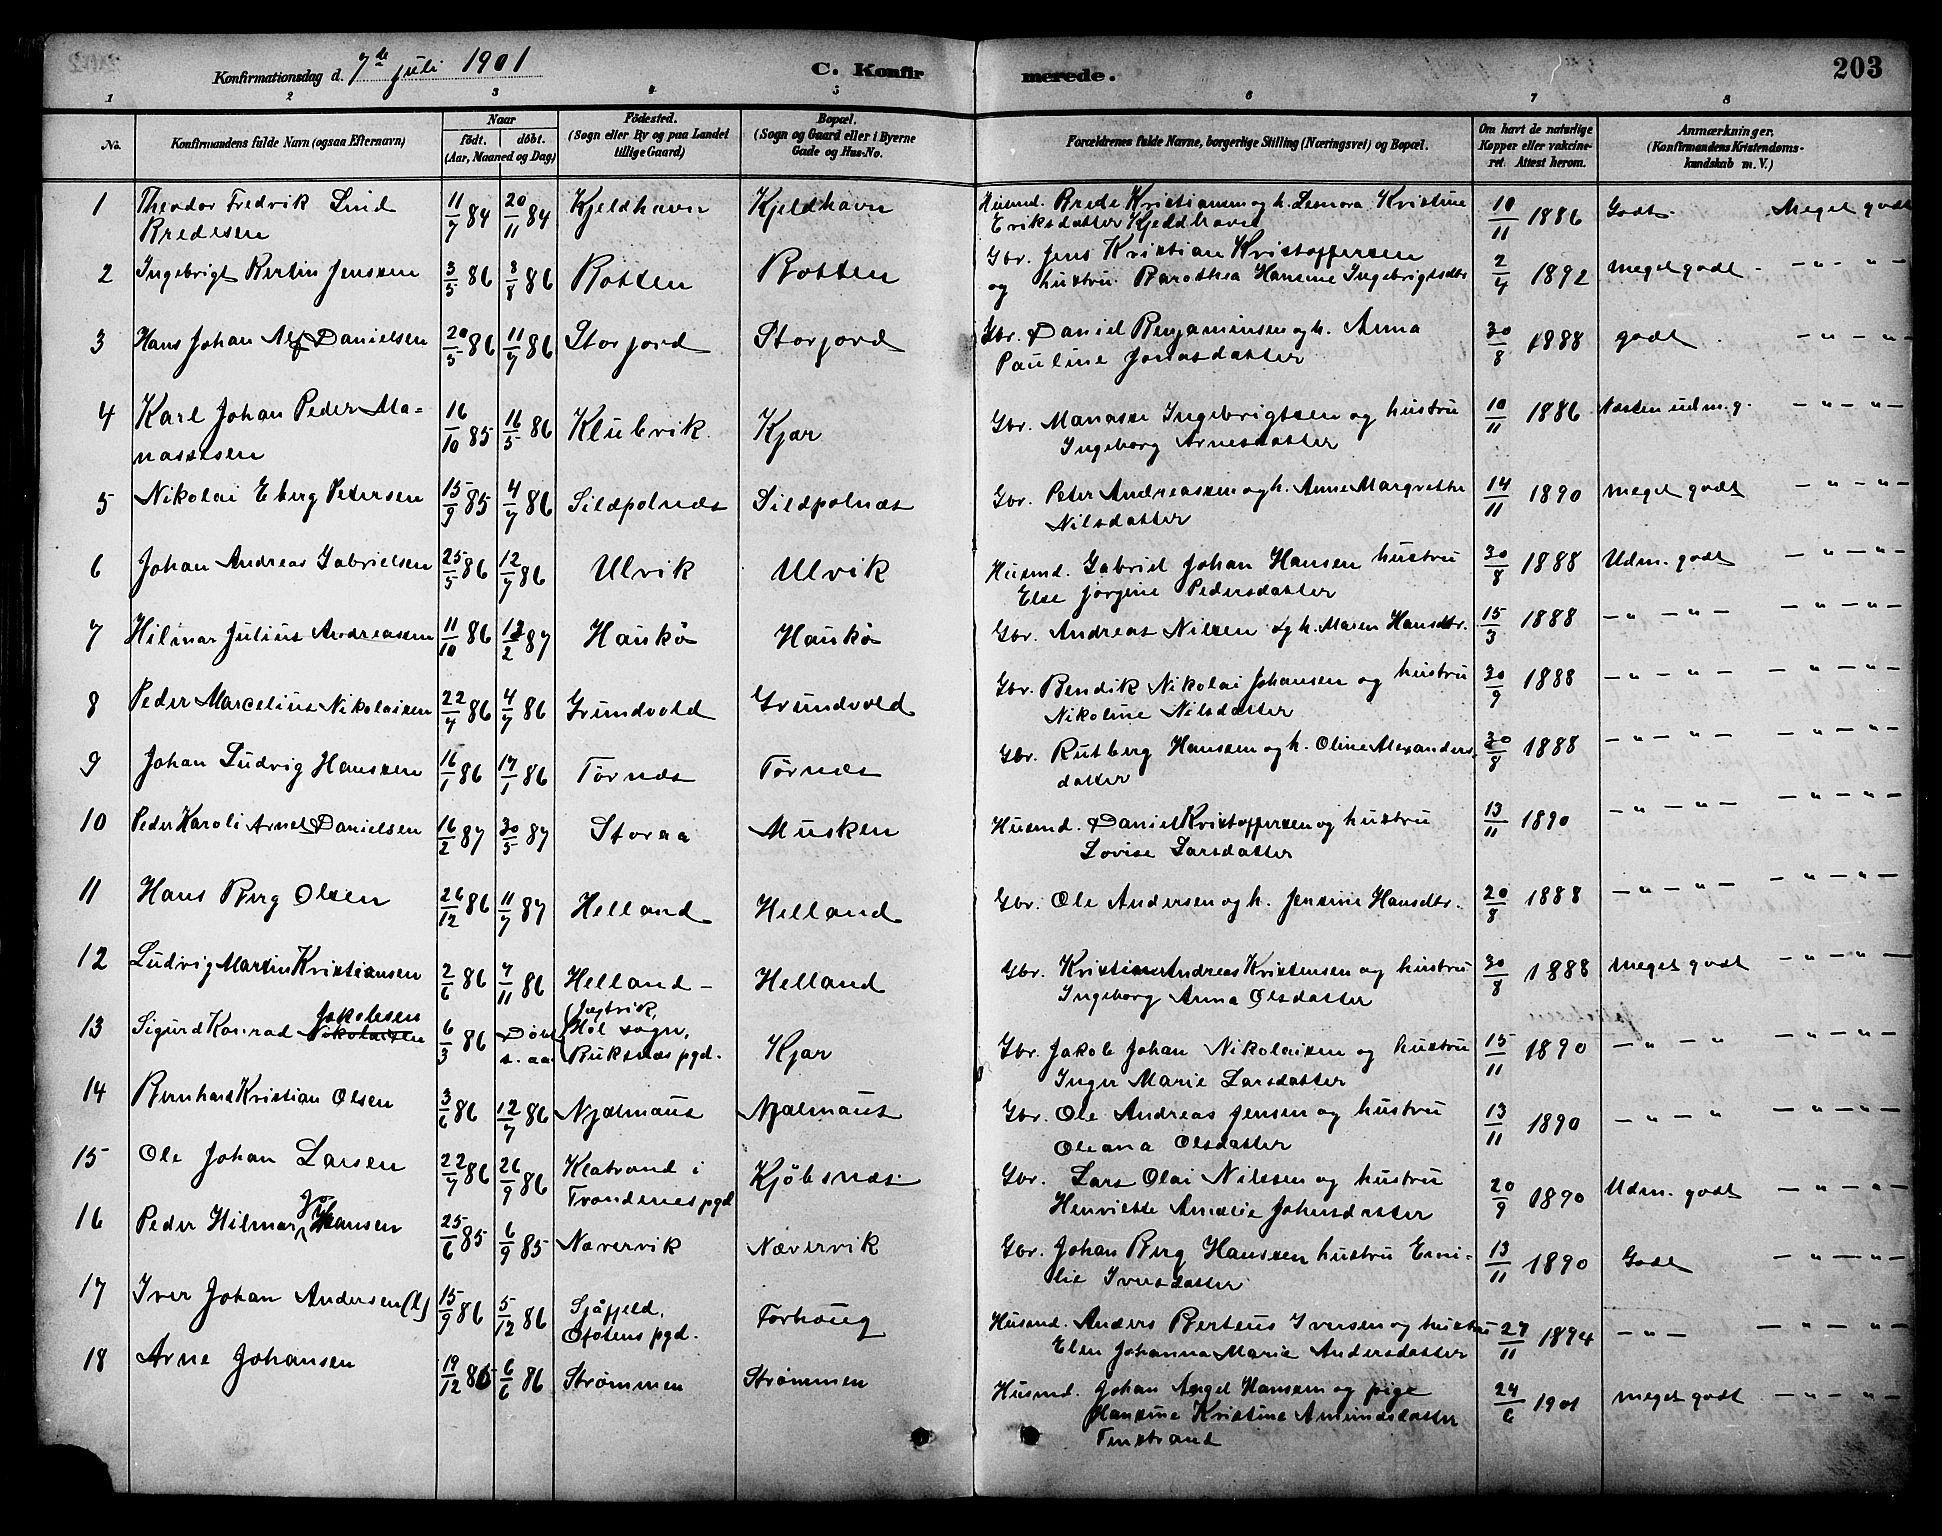 Konfirmationsdag d. 7de juli 1901 C. Konfirmerede. 203
1 2 3 4 5 6 7 8
No. Konfirmandens fulde Navn (ogsaa Efternavn) Naar født. døbt. (Aar, Maaned og Dag) Födested. (Sogn eller By og paa Landet tillige Gaard) Bopæl. (Sogn og Gaard eller i Byerne Gade og Hus-No. Forældrenes fulde Navne, borgerlige Stilling (Næringsvei) og Bopæl. Om havt de naturlige Kopper eller vakcineret. Attest herom. Anmærkninger. (Konfirmandens Kristendomskundskab m. V.)
1 Theodor Fredrik Lind Bredesen 11/7 84 20/11 84 Kjeldhavn Kjeldhavn Husmd. Brede Kristiansen og h. Lenora Kristine Eriksdatter Kjeldhavn 10/11 1886 Godt. Meget godt
2 Ingebrigt Bertin Jenssen 3/5 86 8/8 86 Botten Botten Gbr. Jens Kristian Kristoffersen og hustru Barothea Hansine Ingebrigtsdtr 2/4 1892 meget godt - - " - " -
3 Hans Johan Alf Danielsen 20/5 86 11/7 86 Storjord Storjord Gbr. Daniel Benjaminsen og h. Anna Pauline Jonasdatter 30/8 1888 godt - " - " -
4 Karl Johan Peder Manassesen 16/10 85 16/5 86 Klubvik. Kjær Gbr. Manasse Ingebrigtsen og hustru Ingeborg Arnesdatter 10/11 1886 Næsten udm. g. - " - " -
5 Nikolai Eberg Petersen 15/9 85 4/7 86 Sildpolnæs Sildpolnæs Gbr. Peter Andreassen og h. Anne Margrethe Nilsdatter 14/11 1890 meget godt - " - " -
6 Johan Andreas Gabrielsen 25/5 86 12/7 86 Ulvik Ulvik Husmd. Gabriel Johan Hansen hustru Else Jørgine Pedersdatter 30/8 1888 Udm. godt - " - " -
7 Hilmar Julius Andreassen 11/10 86 13/2 87 Haukø Haukø Gbr. Andreas Nilsen og h. Maren Hansdtr. 15/3 1888 - " - " - - " - " -
8 Peder Marcelius Nikolaisen 22/4 86 4/7 86 Grundvold Grundvold Gbr. Bendik Nikolai Johansen og hustru Nikoline Nilsdatter 30/9 1888 - " - " - - " - " -
9 Johan Ludvig Hanssen 16/1 86 17/1 86 Tørnæs Tørnæs Gbr. Rutberg Hanssen og h. Oline Alexandersdatter 30/8 1888 - " - " - - " - " -
10 Peder Karoli Arnes Danielsen 16/2 87 30/5 87 Storaa Musken Husmd. Daniel Kristoffersen og hustru Lovise Larsdatter 13/11 1890 - " - " - - " - " -
11 Hans Berg Olsen 26/12 86 11/7 87 Helland Helland Gbr. Ole Andersen og h. Jensine Hansdtr. 20/8 1888 - " - " - - " - " -
12 Ludvig Martin Kristiansen 2/6 86 7/11 86 Helland - Helland Gbr. Kristian Andreas Kristensen og hustru Ingeborg Anna Olsdatter 30/8 1888 meget godt - " - " -
13 Sigurd Konrad Nikolaisen Jakobsen 6/3 86 Døbt s. aa. Hol sogn, Buksnæs pgd. Kjær Gbr. Jakob Johan Nikolaisen og hustru Inger Marie Larsdatter 15/11 1890 - " - " - " - " -
14 Bernhard Kristian Olsen 3/6 86 12/7 86 Njælmaus Njælmaus Gbr. Ole Andreas Jensen og hustru Oleana Olsdatter 13/11 1890 - " - " - " - " -
15 Ole Johan Larsen 22/7 86 26/9 86 Klatrand i Trondenes pgd Kjøbsnæs. Gbr. Lars Olai Nilssen og hustru Henriette Amalie Johnsdatter 20/9 1890 Udm. godt - " - " -
16 Peder Hilmar Johansen 25/6 85 6/9 85 Nævervik Nævervik Gbr. Johan Berg Hanssen hustru Emilie Iversdatter 13/11 1890 Godt - " - " -
17 Iver Johan Andersen (l) 15/9 86 5/12 86 Sjåfjeld, Ofotens pgd. Forhoug Husmd. Anders Berteus Iversen og hustru Elen Johanna Marie Andersdatter 27/11 1894 - " - - " - " -
18 Arne Johansen 19/12 85 6/6 86 Strømmen Strømmen Husmd. Johan Angel Hansen og pige Hansine Kristine Amundsdatter Finstrand 24/6 1901 meget godt - " - " -